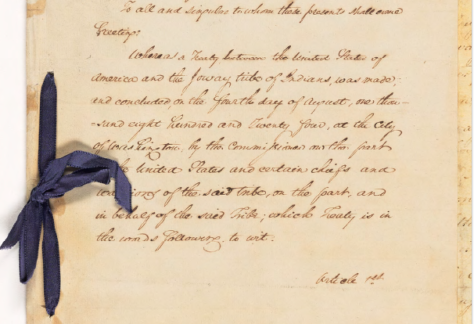 To all and singular to whom these presents shall come
Greeting:
Whereas a Treaty between the United States of
America and the Ioway tribe of Indians, was made
and concluded, on the fourth day of August, one thou-
-sand eight Hundred and Twenty four, at the City
of Washington, by the Commissioner on the part
United States and certain chiefs and
of the said tribe, on the part, and
in behalf of the said Tribe; which Treaty is in
the words following, to wit:
Article 1st.